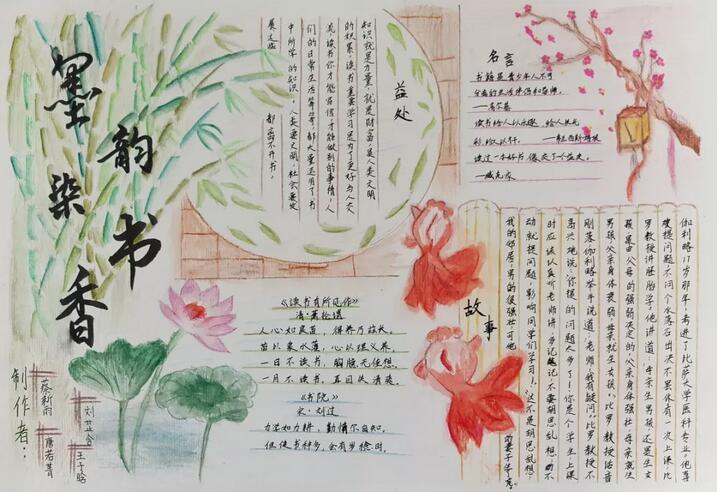 墨韵染书香
制作者:
蔡新雨
刘芷含
唐若菁
王子晗
益处
知识就是力量,就是财富,是人类文明
的积累,读书重要学习是为了更好与人交
流,读书你才能自信,才能做别的事情,人
们的日常生活等等,都大量运用了书
中所学的知识。人类要文明,社会要发
展这些
都离不开书。
名言
书籍是青少年人不可
分离的生活伴侣和导师。
—高尔基
读书给人以乐趣,给人以光
彩,给人以才干。
读过一本好书,像交了个益友。
—臧克家
《读书有所见作》
清·萧抡谓
人心如良苗,得养乃滋长。
苗以泉水灌,心以理义养。
一日不读书,胸臆无佳想。
一月不读书,耳目失清爽。
《书院》
宋·刘过
力学如力耕,勤惰尔自知。
但使书种多,会有岁稔时。
故事
伽利略17岁那年,考进了比萨大学医科专业。他喜
欢提问题,不问个水落石出决不罢休有一次上课,比
罗教授讲胚胎学。他讲道:"母亲生男孩还是生女
孩,是由父母的强弱决定的。父亲身体强壮,母亲就生
男孩;父亲身体衰弱,母亲就生女孩。"比罗教授话音
刚落,伽利略举手说道:"老师,我有疑问。"比罗教授不
高兴地说:"你提的问题太多了!你是个学生,上课
时应该认真听老师讲,多记笔记,不要胡思乱想,动不
动就提问题,影响同学们学习!""这不是胡思乱想,
我的邻居,男的很强壮,可他
的妻子